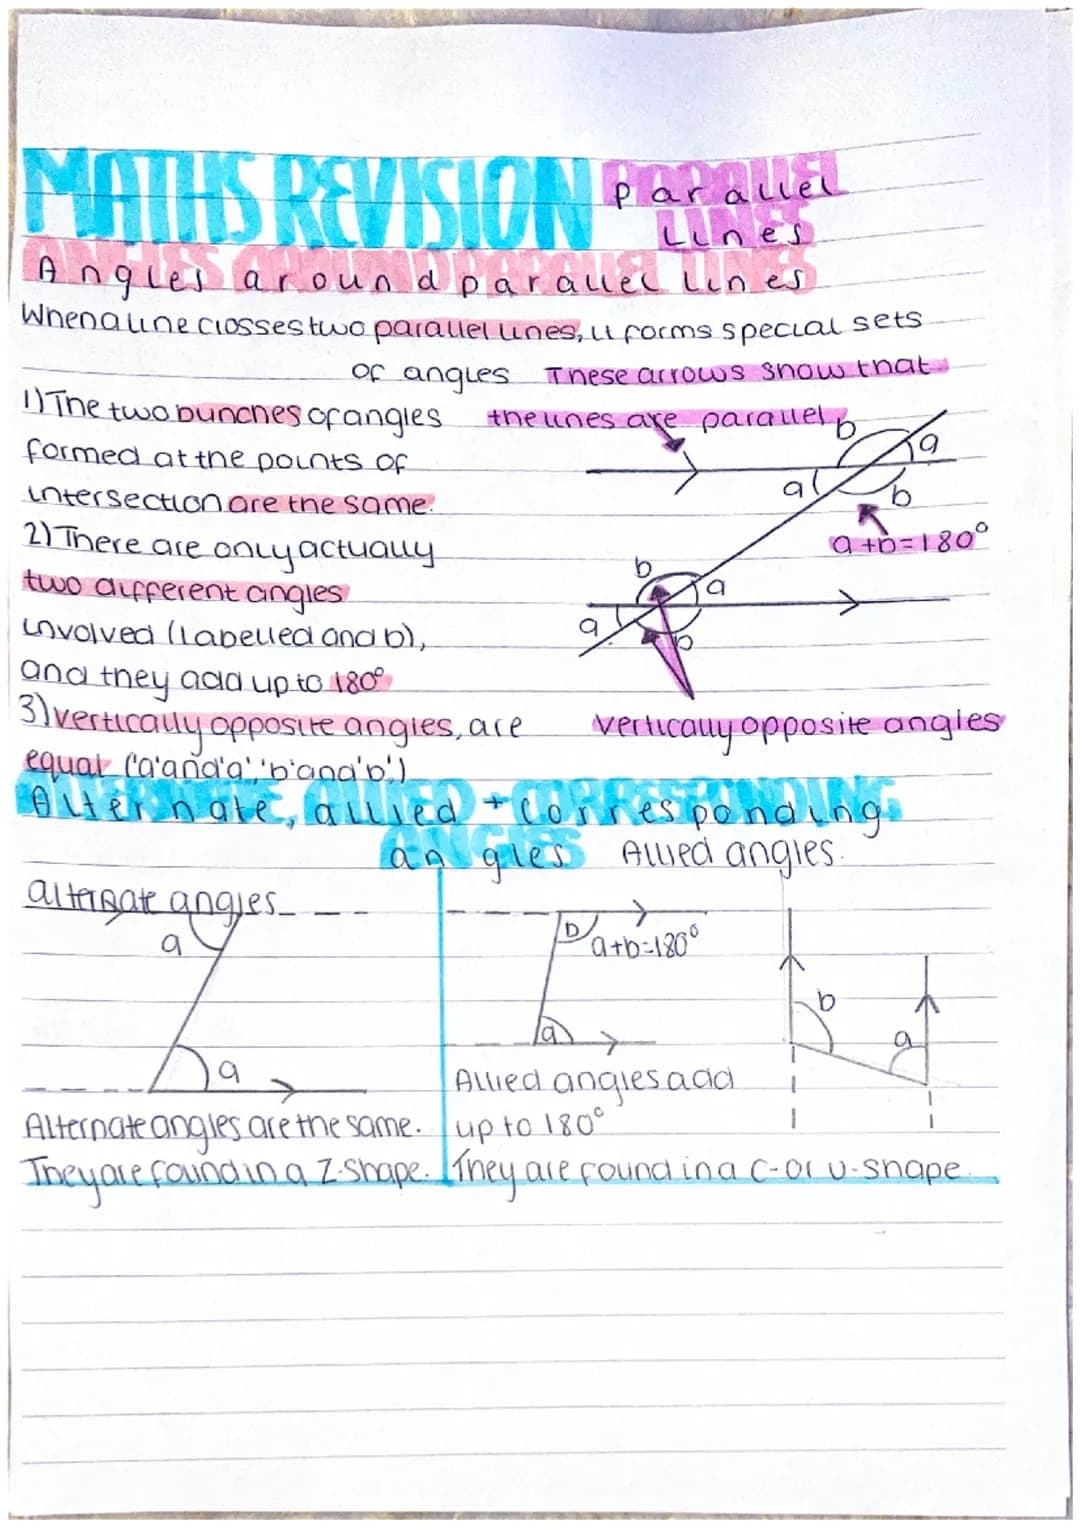 MATHS REVISION PARALLEL
parallel
LINES
Lines
ANGLES AROUND PARALLEL LINES
Angles around parallel lines
When a line crosses two parallel lines, it forms special sets
of angles These arrows show that
1) The two bunches of angles the lines are parallel
formed at the points of
intersection are the same.
2) There are only actually
two different angles
involved (labelled and b),
and they add up to 180°
3) vertically opposite angles, are
equal ('a' and 'a', 'b' and 'b')
b
a
a
b
a+b=180°
b
a
a
b
vertically opposite angles
ALTERNATE, ALLIED + CORRESPONDING
Alternate, allied + corresponding
ANGLES
angles Allied angles.
alternate angles
a
a
Alternate angles are the same.
They are found in a Z-shape.
b
a+b=180°
a
b
a
Allied angles add
up to 180°
They are found in a C- or U-shape.